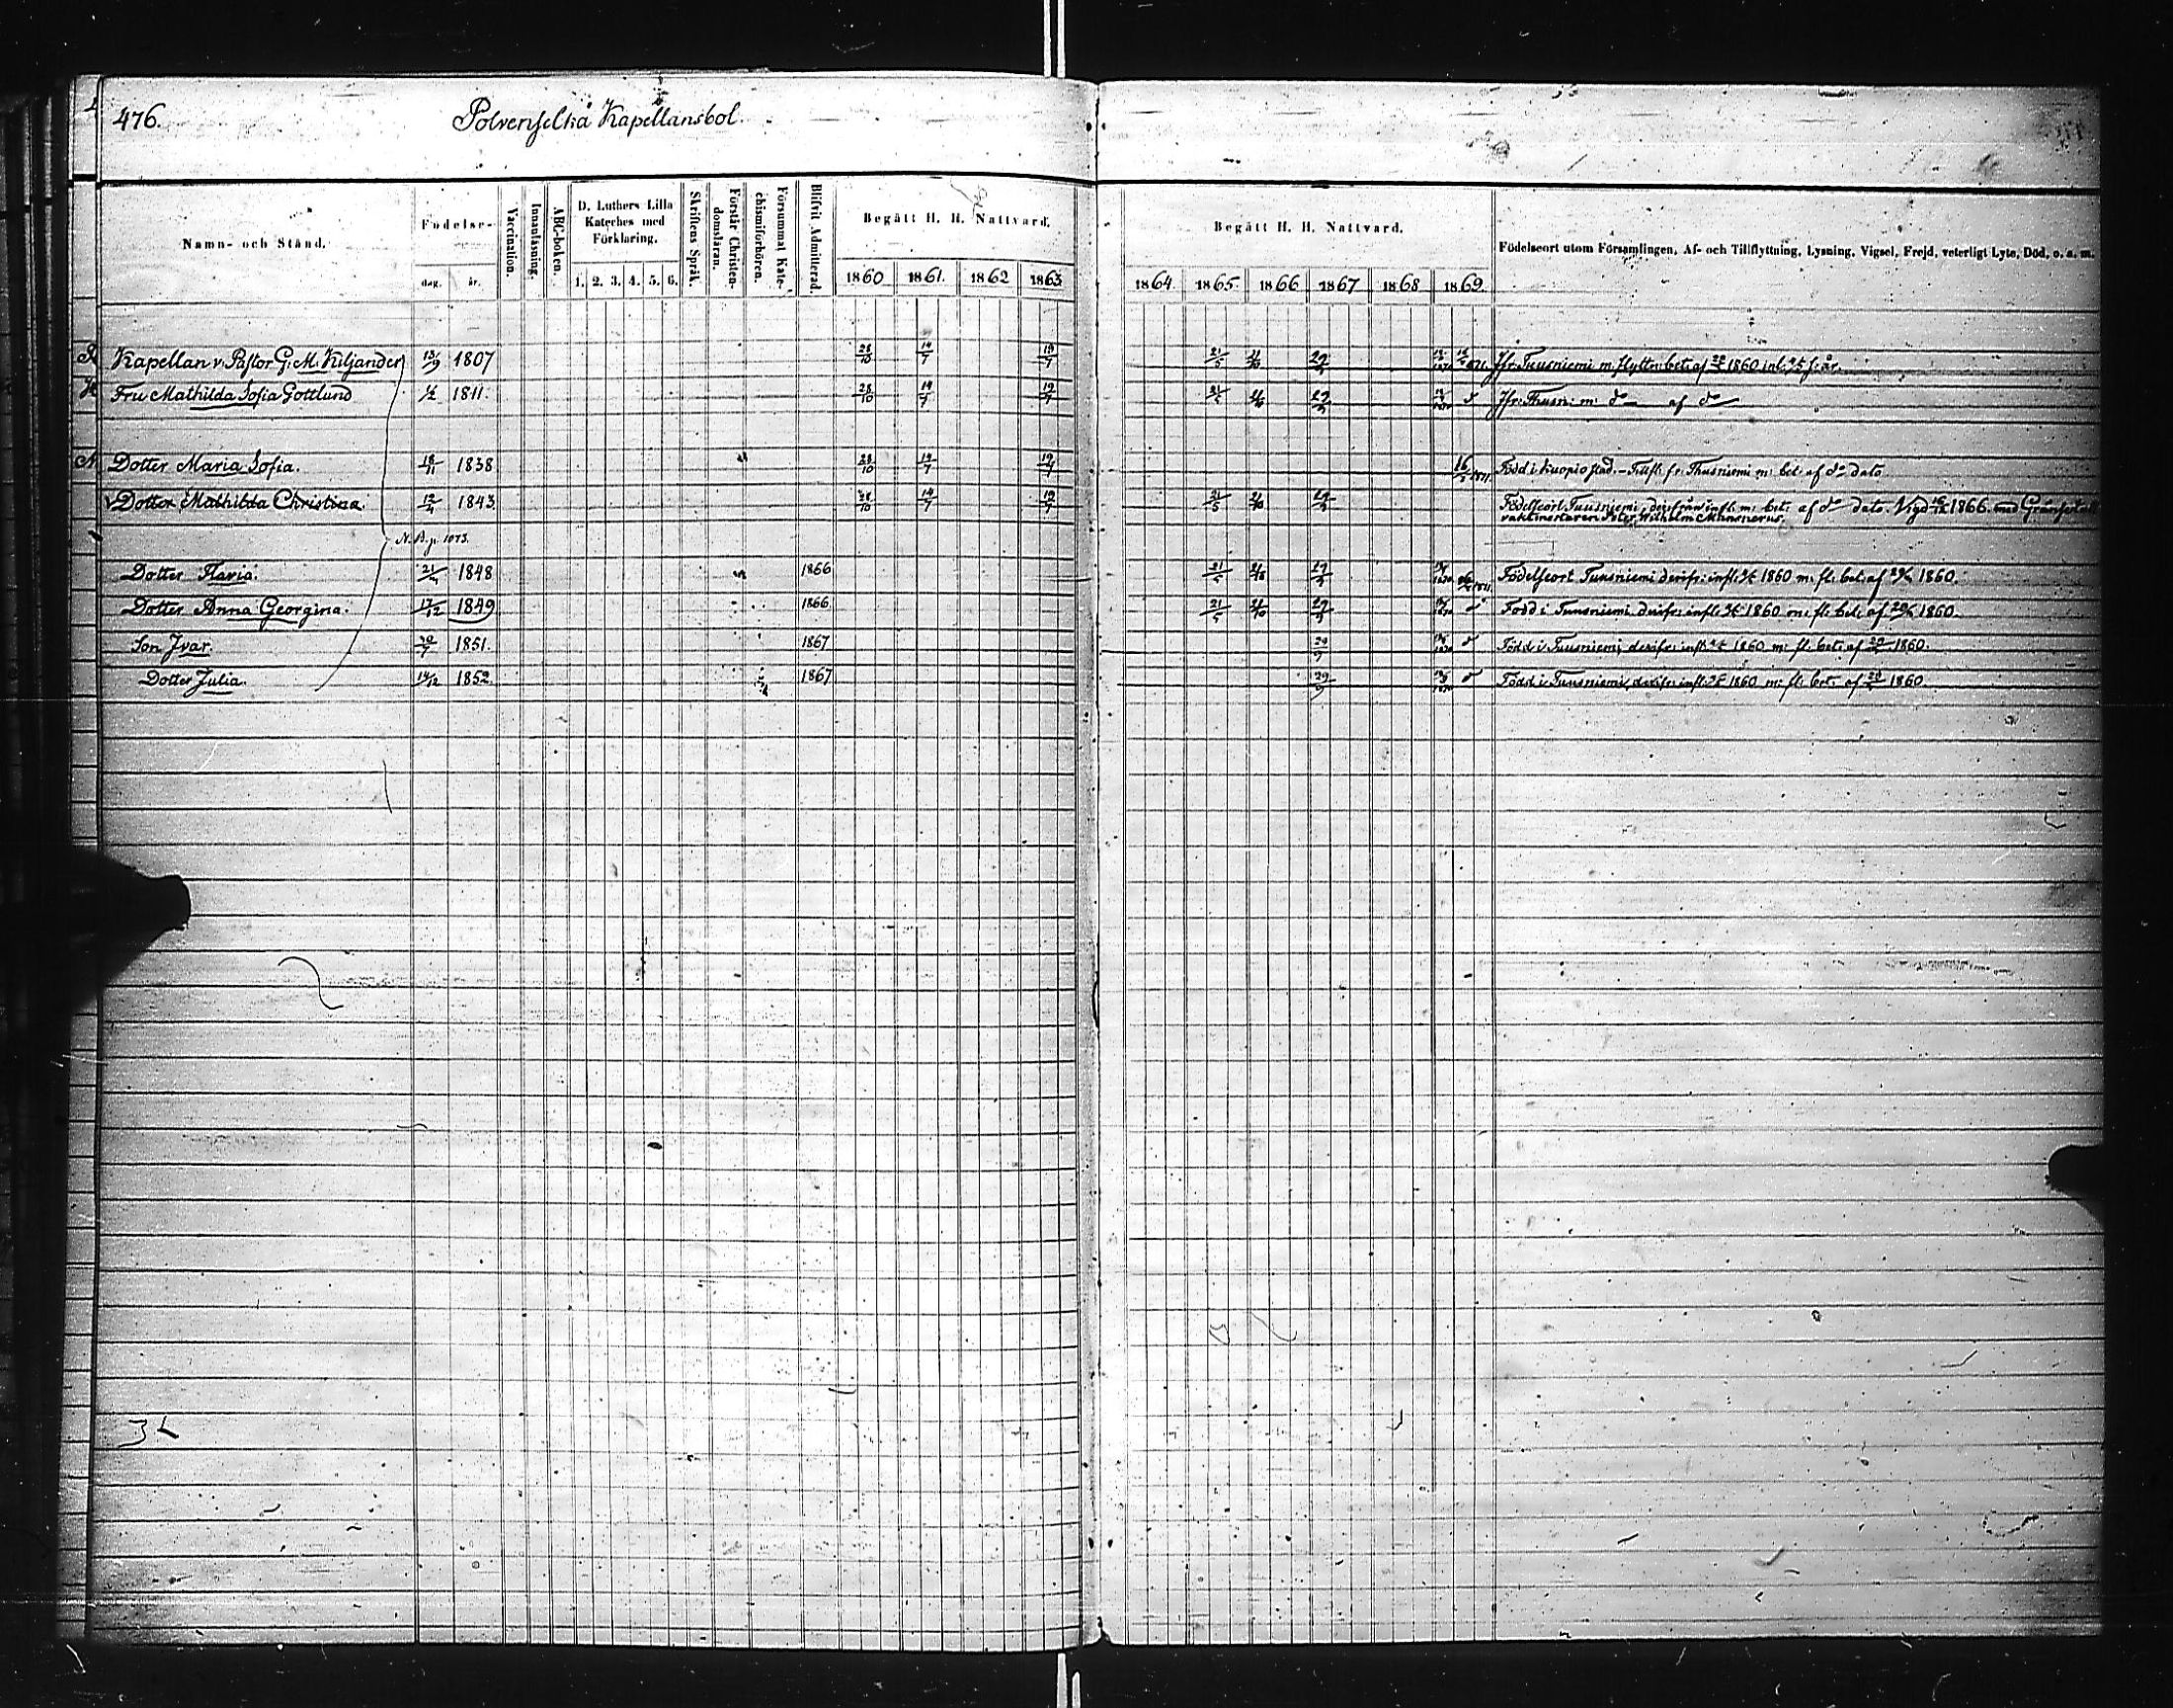 476. Polvenselkä Kapellansbol.
Namn- och Stånd.
Födelse-
dag. år.
Vaccination.
Innanläsning.
ABC-boken.
D. Luthers Lilla
Kateches med
Förklaring.
1. 2. 3. 4. 5. 6.
Skriftens Språk.
Förstår Christen-
domsläran.
Försummat Kate-
chismiförhören.
Blifvit Admitterad.
Begått H. H. Nattvard.
1860 1861. 1862 1863
Begått H. H. Nattvard.
1864. 1865. 1866 1867 1868 1869.
Födelseort utom Församlingen, Af- och Tillflyttning, Lysning, Vigsel, Frejd, veterligt Lyte, Död, o. s. m.
Kapellan v. Pastor G. M. Kiljander 13/9 1807 28/10 19/7 19/7 21/5 29/9 Jfr. Tuusniemi m. flyttn: bet: af 1860 inl. f. år.
Fru Mathilda Sofia Gottlund 1/2 1811. 28/10 19/7 19/7 21/5 29/9 Jfr. Thusn: m: do af do
Dotter Maria Sofia. 18/11 1838 28/10 19/7 19/7 Född i Kuopio stad. - Tillfl. fr. Thusniemi m: bet: af do dato
Dotter Mathilda Christina. 12/4 1843. 28/10 19/7 19/7 21/5 29/9 Födelseort Tuusniemi, derifrån infl. m: bet: af do dato. Vigd 1866. med
vaktmästaren Peter Wilhelm
N. B. p. 1073.
Dotter Flavia. 21/4 1848 1866 21/5 29/9 Födelseort Tuusniemi derifr: infl: 1860 m: fl: bet: af 1860.
Dotter Anna Georgina. 17/12 1849 1866. 21/5 29/9 Född i Tuusniemi derifr: infl: 1860 m: fl: bet: af 1860.
Son Ivar. 30/7 1851. 1867 29/9 Född i Tuusniemi, derifr: infl: 1860 m: fl: bet: af 1860.
Dotter Julia. 14/12 1852. 1867 29/9 Född i Tuusniemi, derifr: infl: 1860 m: fl: bet: af 1860.